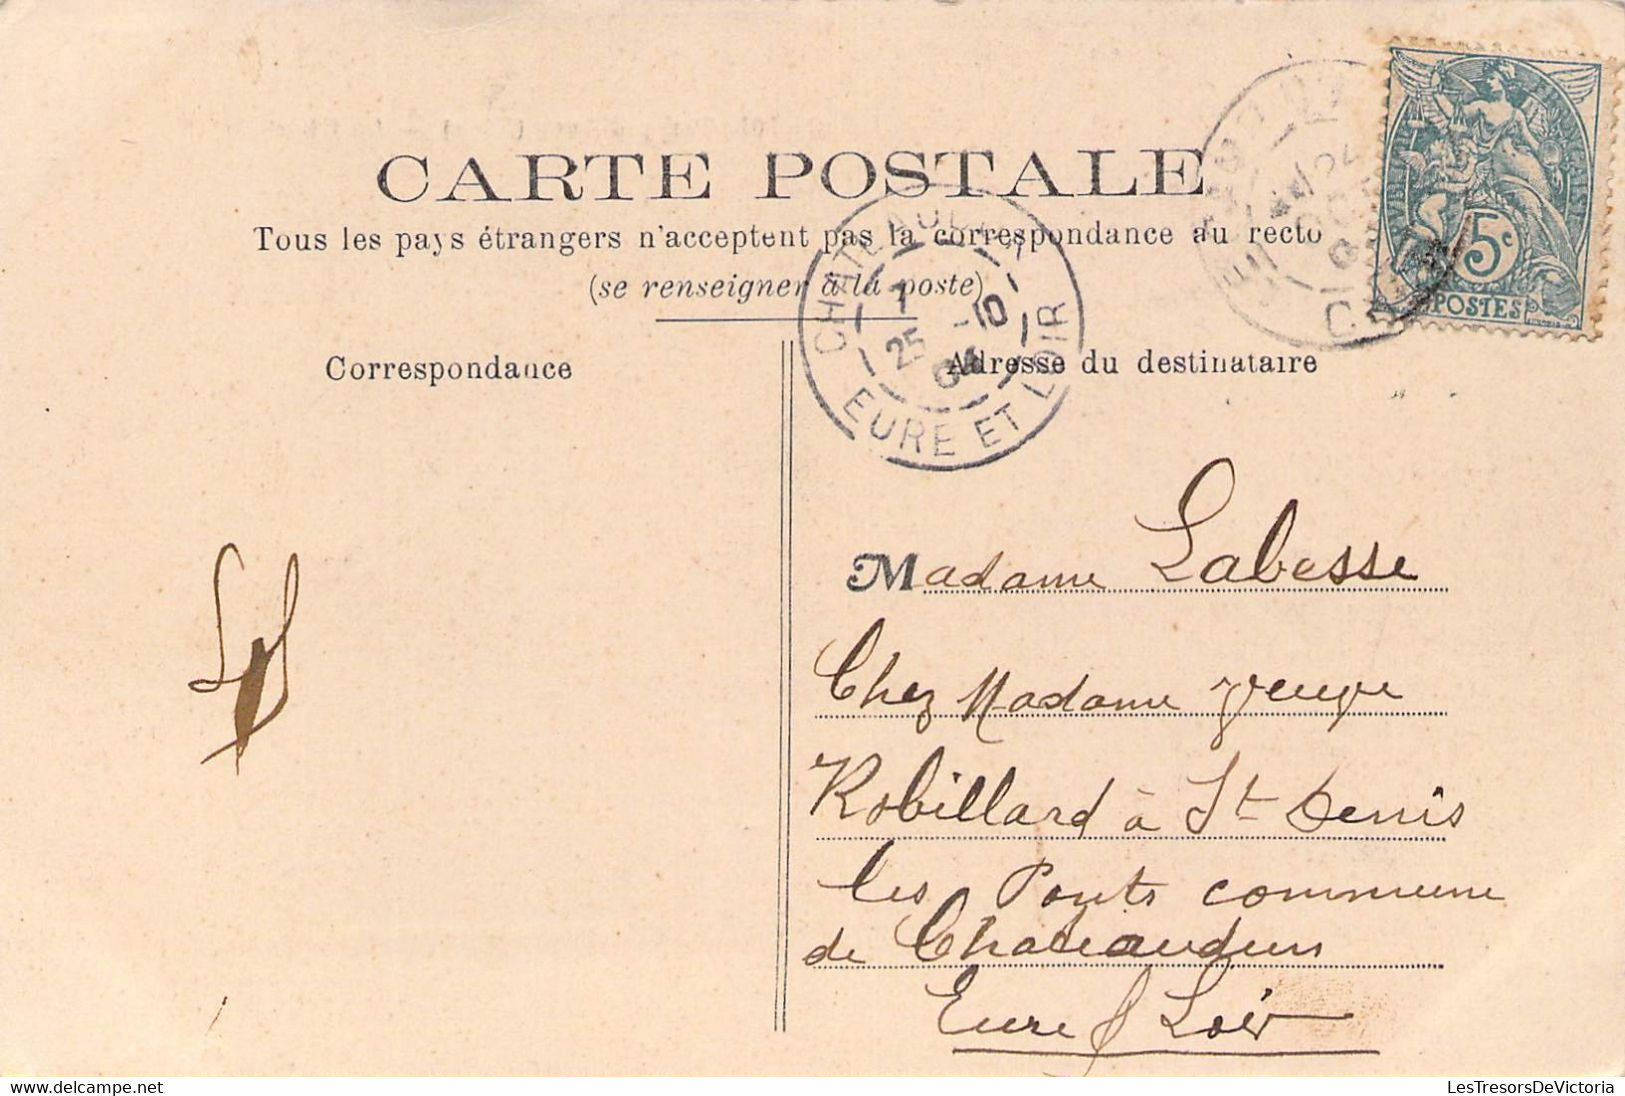 CARTE POSTALE
Tous les pays étrangers n'acceptent pas la correspondance au recto
(se renseigner à la poste)
Correspondance
Adresse du destinataire
CHATEAUDUN
7
25 -10
04
EURE ET LOIR
5c
POSTES
Madame Labesse
Chez Madame Veuve
Robillard à St Denis
les Ponts commune
de Chateaudun
Eure & Loir
LesTresorsDeVictoria